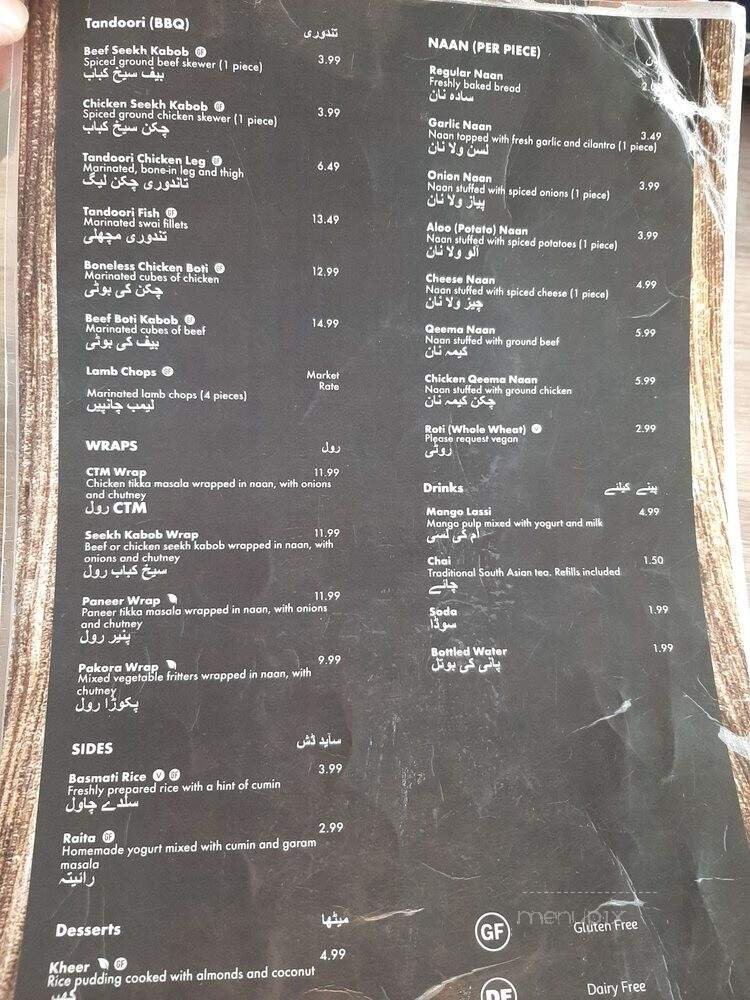 Tandoori (BBQ)
تندوری
Beef Seekh Kabob GF 3.99
Spiced ground beef skewer (1 piece)
بیف سیخ کباب
Chicken Seekh Kabob GF 3.99
Spiced ground chicken skewer (1 piece)
چکن سیخ کباب
Tandoori Chicken Leg GF 6.49
Marinated, bone-in leg and thigh
تاندوری چکن لیگ
Tandoori Fish GF 13.49
Marinated swai fillets
تندوری مچھلی
Boneless Chicken Boti GF 12.99
Marinated cubes of chicken
چکن کی بوٹی
Beef Boti Kabob GF 14.99
Marinated cubes of beef
بیف کی بوٹی
Lamb Chops GF Market
Rate
Marinated lamb chops (4 pieces)
لیمب چانپیں
WRAPS رول
CTM Wrap 11.99
Chicken tikka masala wrapped in naan, with onions
and chutney
CTM رول
Seekh Kabob Wrap 11.99
Beef or chicken seekh kabob wrapped in naan, with
onions and chutney
سیخ کباب رول
Paneer Wrap 11.99
Paneer tikka masala wrapped in naan, with onions
and chutney
پنیر رول
Pakora Wrap 9.99
Mixed vegetable fritters wrapped in naan, with
chutney
پکوڑا رول
SIDES سایڈ ڈش
Basmati Rice V GF 3.99
Freshly prepared rice with a hint of cumin
سادے چاول
Raita GF 2.99
Homemade yogurt mixed with cumin and garam
masala
رائیتہ
Desserts میٹھا
Kheer GF 4.99
Rice pudding cooked with almonds and coconut
کھیر
NAAN (PER PIECE)
Regular Naan
Freshly baked bread
سادہ نان
Garlic Naan 3.49
Naan topped with fresh garlic and cilantro (1 piece)
لسن ولا نان
Onion Naan 3.99
Naan stuffed with spiced onions (1 piece)
پیاز ولا نان
Aloo (Potato) Naan 3.99
Naan stuffed with spiced potatoes (1 piece)
آلو ولا نان
Cheese Naan 4.99
Naan stuffed with spiced cheese (1 piece)
چیز ولا نان
Qeema Naan 5.99
Naan stuffed with ground beef
کیمہ نان
Chicken Qeema Naan 5.99
Naan stuffed with ground chicken
چکن کیمہ نان
Roti (Whole Wheat) V 2.99
Please request vegan
روٹی
Drinks پینے کیلئے
Mango Lassi 4.99
Mango pulp mixed with yogurt and milk
آم کی لسی
Chai 1.50
Traditional South Asian tea. Refills included
چائے
Soda 1.99
سوڈا
Bottled Water 1.99
پانی کی بوتل
menupix
GF Gluten Free
DF Dairy Free